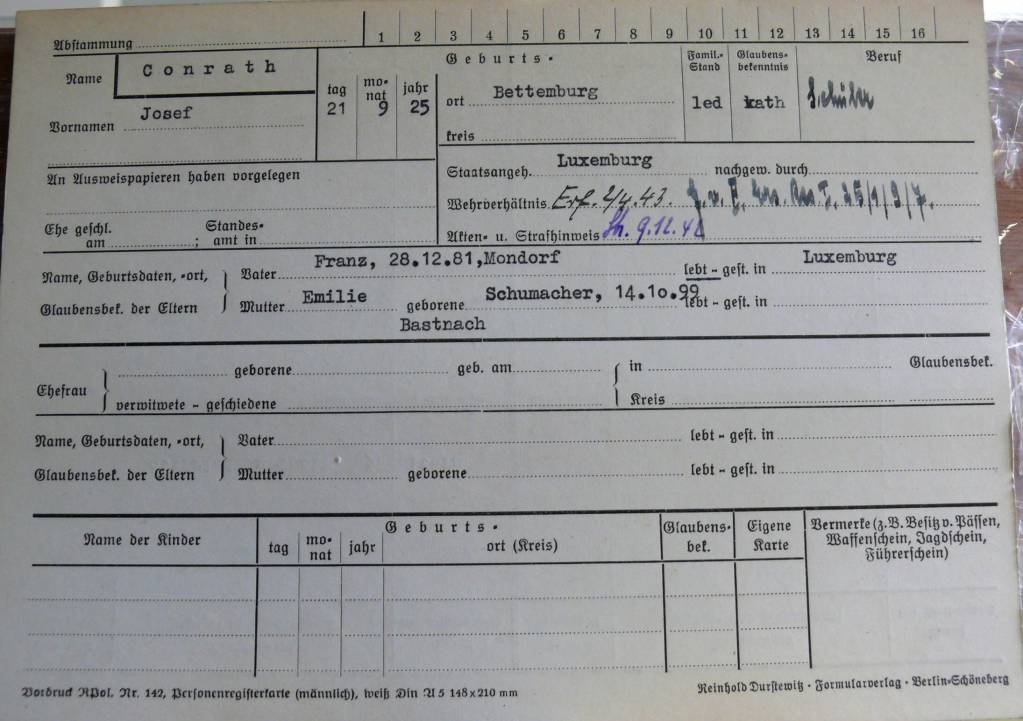 Abstammung 1 2 3 4 5 6 7 8 9 10 11 12 13 14 15 16
Name Conrath
tag monat jahr
21 9 25
Geburts-
ort Bettemburg
kreis
Famil.-Stand
led
Glaubensbekenntnis
kath
Beruf
Schüler
Vornamen Josef
An Ausweispapieren haben vorgelegen
Ehe geschl. am ; Standesamt in
Staatsangeh. Luxemburg nachgew. durch
Wehrverhältnis Erf. 2/4.43.
Akten- u. Strafhinweis
Name, Geburtsdaten, -ort, Vater Franz, 28.12.81,Mondorf lebt - gest. in Luxemburg
Glaubensbek. der Eltern Mutter Emilie geborene Schumacher, 14.10.99 lebt - gest. in
Bastnach
Ehefrau geborene geb. am in Glaubensbek.
verwitwete - geschiedene Kreis
Name, Geburtsdaten, -ort, Vater lebt - gest. in
Glaubensbek. der Eltern Mutter geborene lebt - gest. in
Name der Kinder
Geburts-
tag monat jahr ort (Kreis)
Glaubensbek.
Eigene Karte
Vermerke (z. B. Besitz v. Pässen,
Waffenschein, Jagdschein,
Führerschein)
Vordruck RPol. Nr. 142, Personenregisterkarte (männlich), weiß Din A 5 148x210 mm
Reinhold Durstewitz · Formularverlag · Berlin-Schöneberg